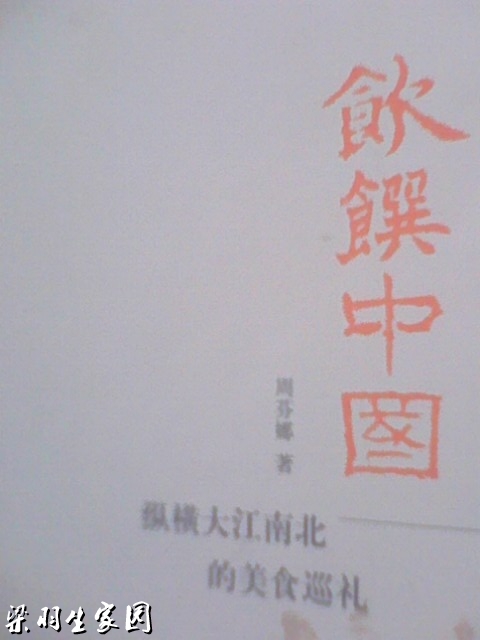 飲饌中國
周芬娜 著
纵横大江南北
的美食巡礼
梁羽生家园